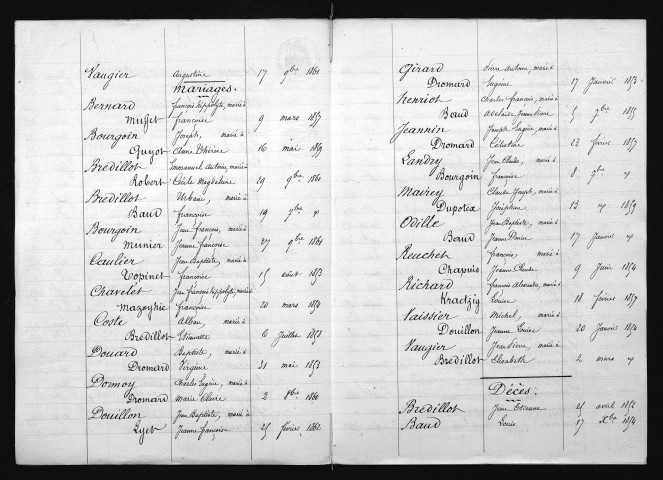 Vaugier Augustine 17 9bre 1861
Mariages.
Bernard François hippolyte, marié à
Muffet françoise 9 mars 1857
Bourgoin Joseph, marié à
Guyot Anne Thérèse 16 mai 1859
Bredillot Emmanuel Antoine, marié à
Robert Cécile Magdeleine 29 9bre 1860
Bredillot Urbain, marié à
Baud françoise 19 7bre
Bourgoin Jean François, marié à
Munier Jeanne françoise 27 9bre 1861
Caulier Jean Baptiste, marié à
Topinet françoise 15 août 1853
Chavelet Jean françois hippolyte, marié à
Mazoyhie françoise 20 mars 1854
Coste Alban, marié à
Bredillot Etiennette 6 Juillet 1853
Douard Baptiste, marié à
Dromard Virginie 31 mai 1853
Donnoy Charles Eugène, marié à
Dromard Marie Claire 2 8bre 1860
Douillon Jean Baptiste, marié à
Lyet Jeanne françoise 25 février 1862
Girard Pierre Antoine, marié à
Dromard Eugénie 17 Janvier 1853
henriot Charles françois, marié à
Baud Adelaïde Jeanne 5 7bre 1855
Jeannin Joseph Eugène, marié à
Dromard Célestine 13 février 1857
Landry Jean Claude, marié à
Bourgoin françoise 8 9bre
Mairey Claude Joseph, marié à
Dupotex Joséphine 13 1859
Odille Jean Baptiste, marié à
Baud Jeanne Denise 17 Janvier
Reuchet françois, marié à
Chapuis Jeanne Claude 9 Juin 1854
Richard françois Alexandre, marié à
Kraetzig Louise 18 février 1857
Vaissier Michel, marié à
Douillon Jeanne Louise 20 Janvier 1854
Vaugier Jean Pierre, marié à
Bredillot Elisabeth 2 mars
Décès.
Bredillot Jean Etienne 25 avril 1852
Baud Louis 17 Xbre 1854